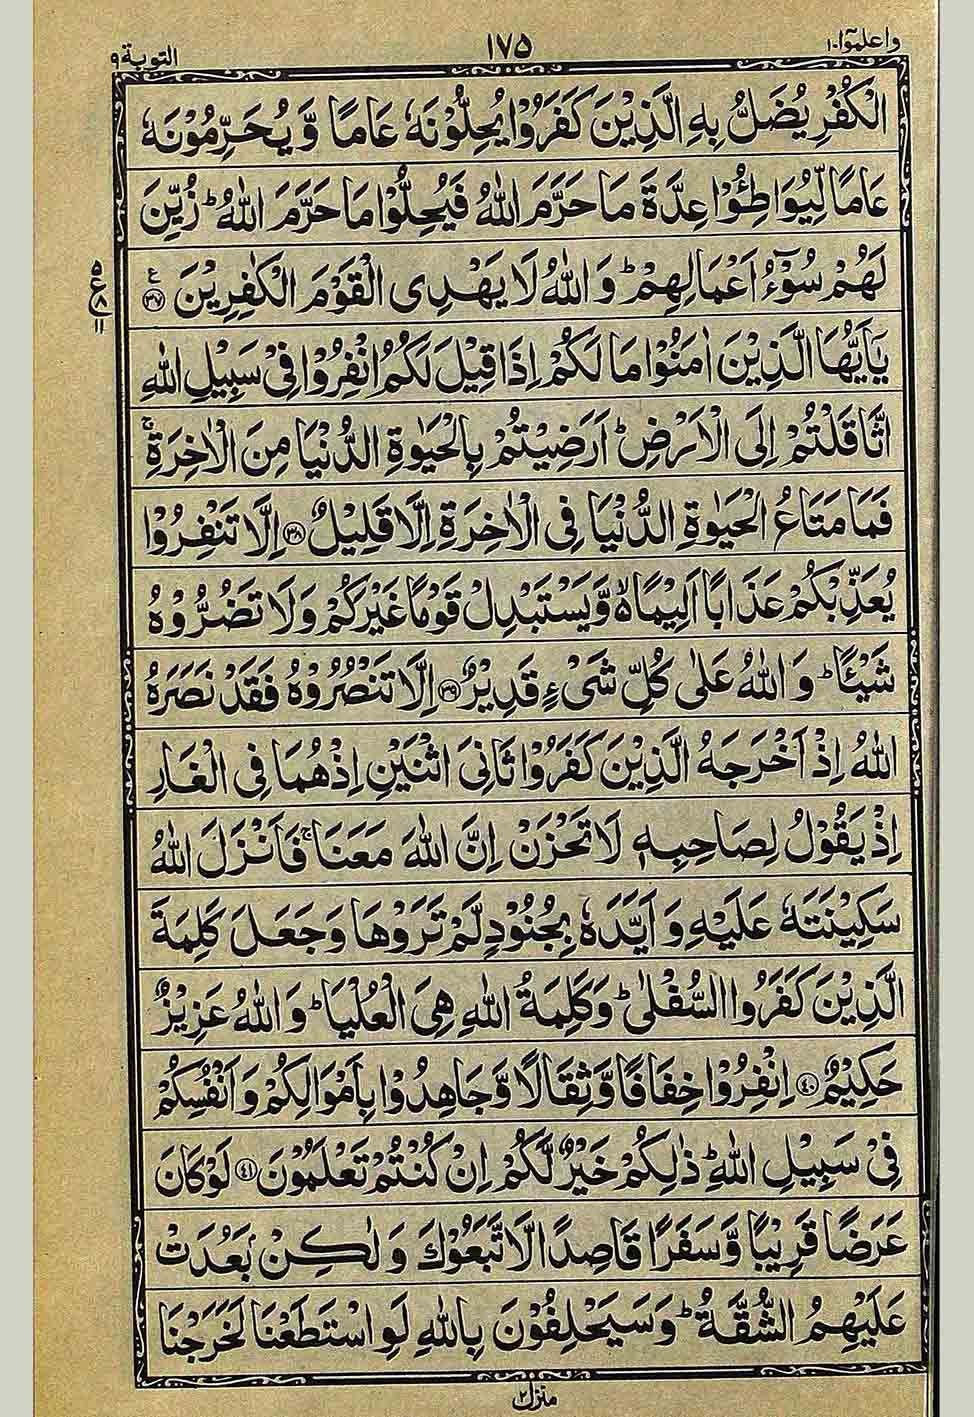 واعلموا ١٠ ١٧٥ التوبة ٩
الْكُفْرِ يُضَلُّ بِهِ الَّذِيْنَ كَفَرُوْا يُحِلُّوْنَهٗ عَامًا وَّ يُحَرِّمُوْنَهٗ
عَامًا لِّيُوَاطِـُٔوْا عِدَّةَ مَا حَرَّمَ اللّٰهُ فَيُحِلُّوْا مَا حَرَّمَ اللّٰهُ ؕ زُيِّنَ
لَهُمْ سُوْٓءُ اَعْمَالِهِمْ ؕ وَ اللّٰهُ لَا يَهْدِی الْقَوْمَ الْكٰفِرِيْنَ ﴿٣٧﴾ ع
٥
ع ٨
١١
يٰۤاَيُّهَا الَّذِيْنَ اٰمَنُوْا مَا لَكُمْ اِذَا قِيْلَ لَكُمُ انْفِرُوْا فِیْ سَبِيْلِ اللّٰهِ
اثَّاقَلْتُمْ اِلَی الْاَرْضِ ؕ اَرَضِيْتُمْ بِالْحَيٰوةِ الدُّنْيَا مِنَ الْاٰخِرَةِ ۚ
فَمَا مَتَاعُ الْحَيٰوةِ الدُّنْيَا فِی الْاٰخِرَةِ اِلَّا قَلِيْلٌ ﴿٣٨﴾ اِلَّا تَنْفِرُوْا
يُعَذِّبْكُمْ عَذَابًا اَلِيْمًا ۙ۬ وَّ يَسْتَبْدِلْ قَوْمًا غَيْرَكُمْ وَ لَا تَضُرُّوْهُ
شَيْـًٔا ؕ وَ اللّٰهُ عَلٰی كُلِّ شَیْءٍ قَدِيْرٌ ﴿٣٩﴾ اِلَّا تَنْصُرُوْهُ فَقَدْ نَصَرَهُ
اللّٰهُ اِذْ اَخْرَجَهُ الَّذِيْنَ كَفَرُوْا ثَانِیَ اثْنَيْنِ اِذْ هُمَا فِی الْغَارِ
اِذْ يَقُوْلُ لِصَاحِبِهٖ لَا تَحْزَنْ اِنَّ اللّٰهَ مَعَنَا ۚ فَاَنْزَلَ اللّٰهُ
سَكِيْنَتَهٗ عَلَيْهِ وَ اَيَّدَهٗ بِجُنُوْدٍ لَّمْ تَرَوْهَا وَ جَعَلَ كَلِمَةَ
الَّذِيْنَ كَفَرُوا السُّفْلٰی ؕ وَ كَلِمَةُ اللّٰهِ هِیَ الْعُلْيَا ؕ وَ اللّٰهُ عَزِيْزٌ
حَكِيْمٌ ﴿٤٠﴾ اِنْفِرُوْا خِفَافًا وَّ ثِقَالًا وَّ جَاهِدُوْا بِاَمْوَالِكُمْ وَ اَنْفُسِكُمْ
فِیْ سَبِيْلِ اللّٰهِ ؕ ذٰلِكُمْ خَيْرٌ لَّكُمْ اِنْ كُنْتُمْ تَعْلَمُوْنَ ﴿٤١﴾ لَوْ كَانَ
عَرَضًا قَرِيْبًا وَّ سَفَرًا قَاصِدًا لَّاتَّبَعُوْكَ وَ لٰكِنْۢ بَعُدَتْ
عَلَيْهِمُ الشُّقَّةُ ؕ وَ سَيَحْلِفُوْنَ بِاللّٰهِ لَوِ اسْتَطَعْنَا لَخَرَجْنَا
منزل ٢